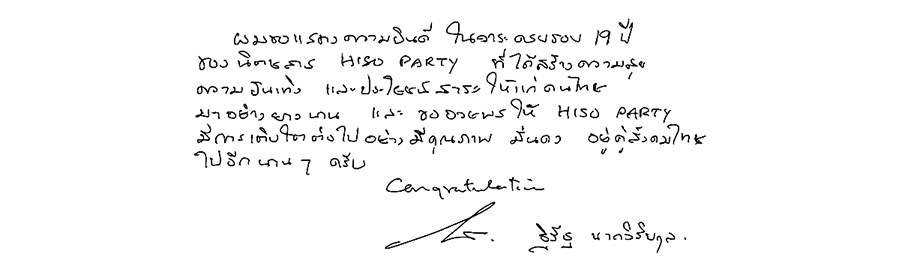 ผมขอแสดงความยินดี ในวาระครบรอบ 19 ปี
ของ นิตยสาร HISO PARTY ที่ได้สร้างความสุข
ความบันเทิง และประโยชน์สาระให้แก่คนไทย
มาอย่างยาวนาน และขออวยพรให้ HISO PARTY
มีการเติบโตต่อไปอย่างมีคุณภาพ มั่นคง อยู่คู่สังคมไทย
ไปอีกนาน ๆ ครับ
Congratulation
นาควิรบกุล.